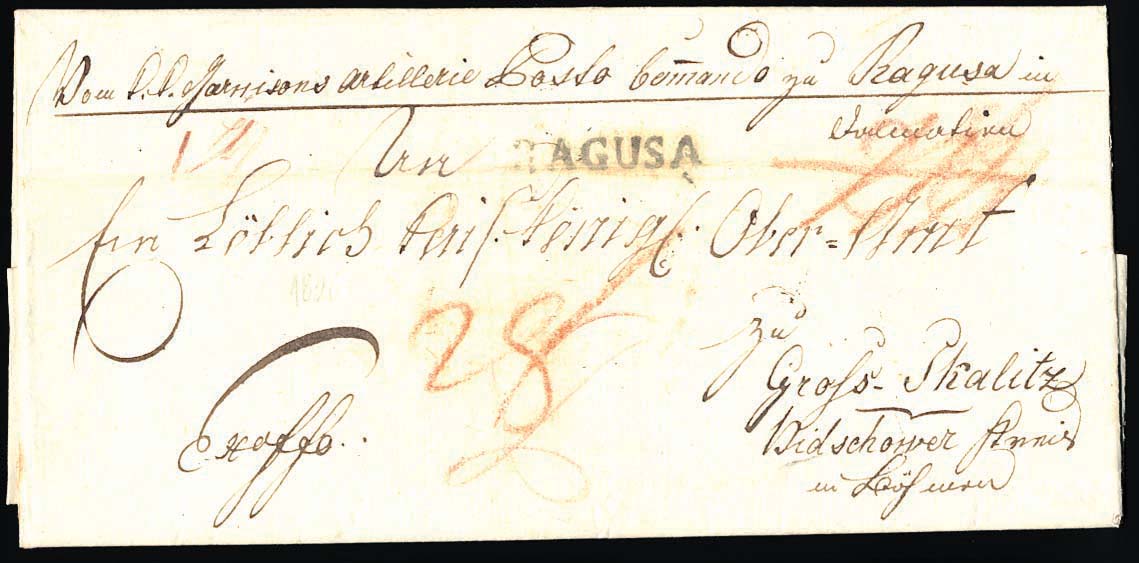 Vom k. k. Garnisons Artillerie Posto Com̄ando zu Ragusa in
Dalmatien
An RAGUSA
Ein Löblich Kais. Königl. Ober-Amt
28
zu
Gross-Skalitz
Exoffo..
Bidschower Kreis
in Böhmen